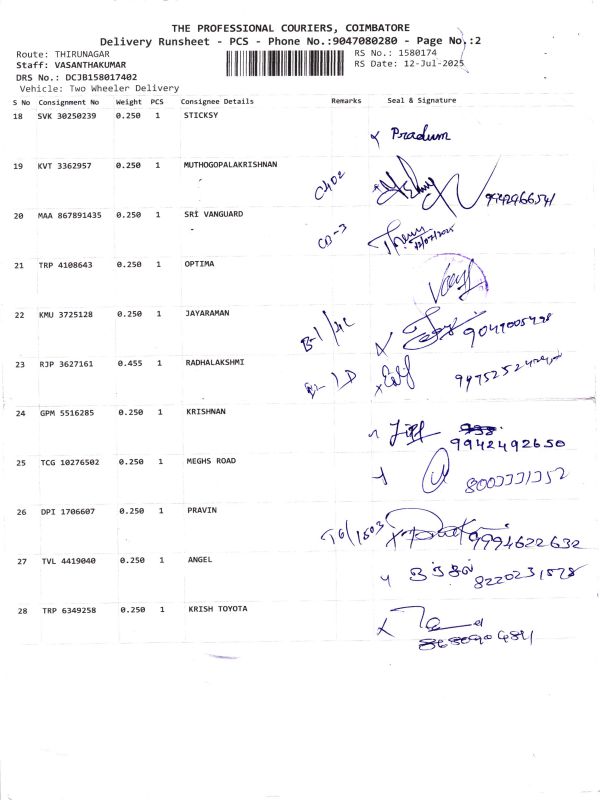 THE PROFESSIONAL COURIERS, COIMBATORE
Delivery Runsheet - PCS - Phone No.:9047080280 - Page No.:2
Route: THIRUNAGAR RS No.: 1580174
Staff: VASANTHAKUMAR RS Date: 12-Jul-2025
DRS No.: DCJB158017402
Vehicle: Two Wheeler Delivery
S No Consignment No Weight PCS Consignee Details Remarks Seal & Signature
18 SVK 30250239 0.250 1 STICKSY
Pradum
19 KVT 3362957 0.250 1 MUTHOGOPALAKRISHNAN
20 MAA 867891435 0.250 1 SRI VANGUARD
-
12/07/2025
21 TRP 4108643 0.250 1 OPTIMA
22 KMU 3725128 0.250 1 JAYARAMAN
23 RJP 3627161 0.455 1 RADHALAKSHMI
24 GPM 5516285 0.250 1 KRISHNAN
9942492650
25 TCG 10276502 0.250 1 MEGHS ROAD
26 DPI 1706607 0.250 1 PRAVIN
T6/1503 9994622632
27 TVL 4419040 0.250 1 ANGEL
28 TRP 6349258 0.250 1 KRISH TOYOTA